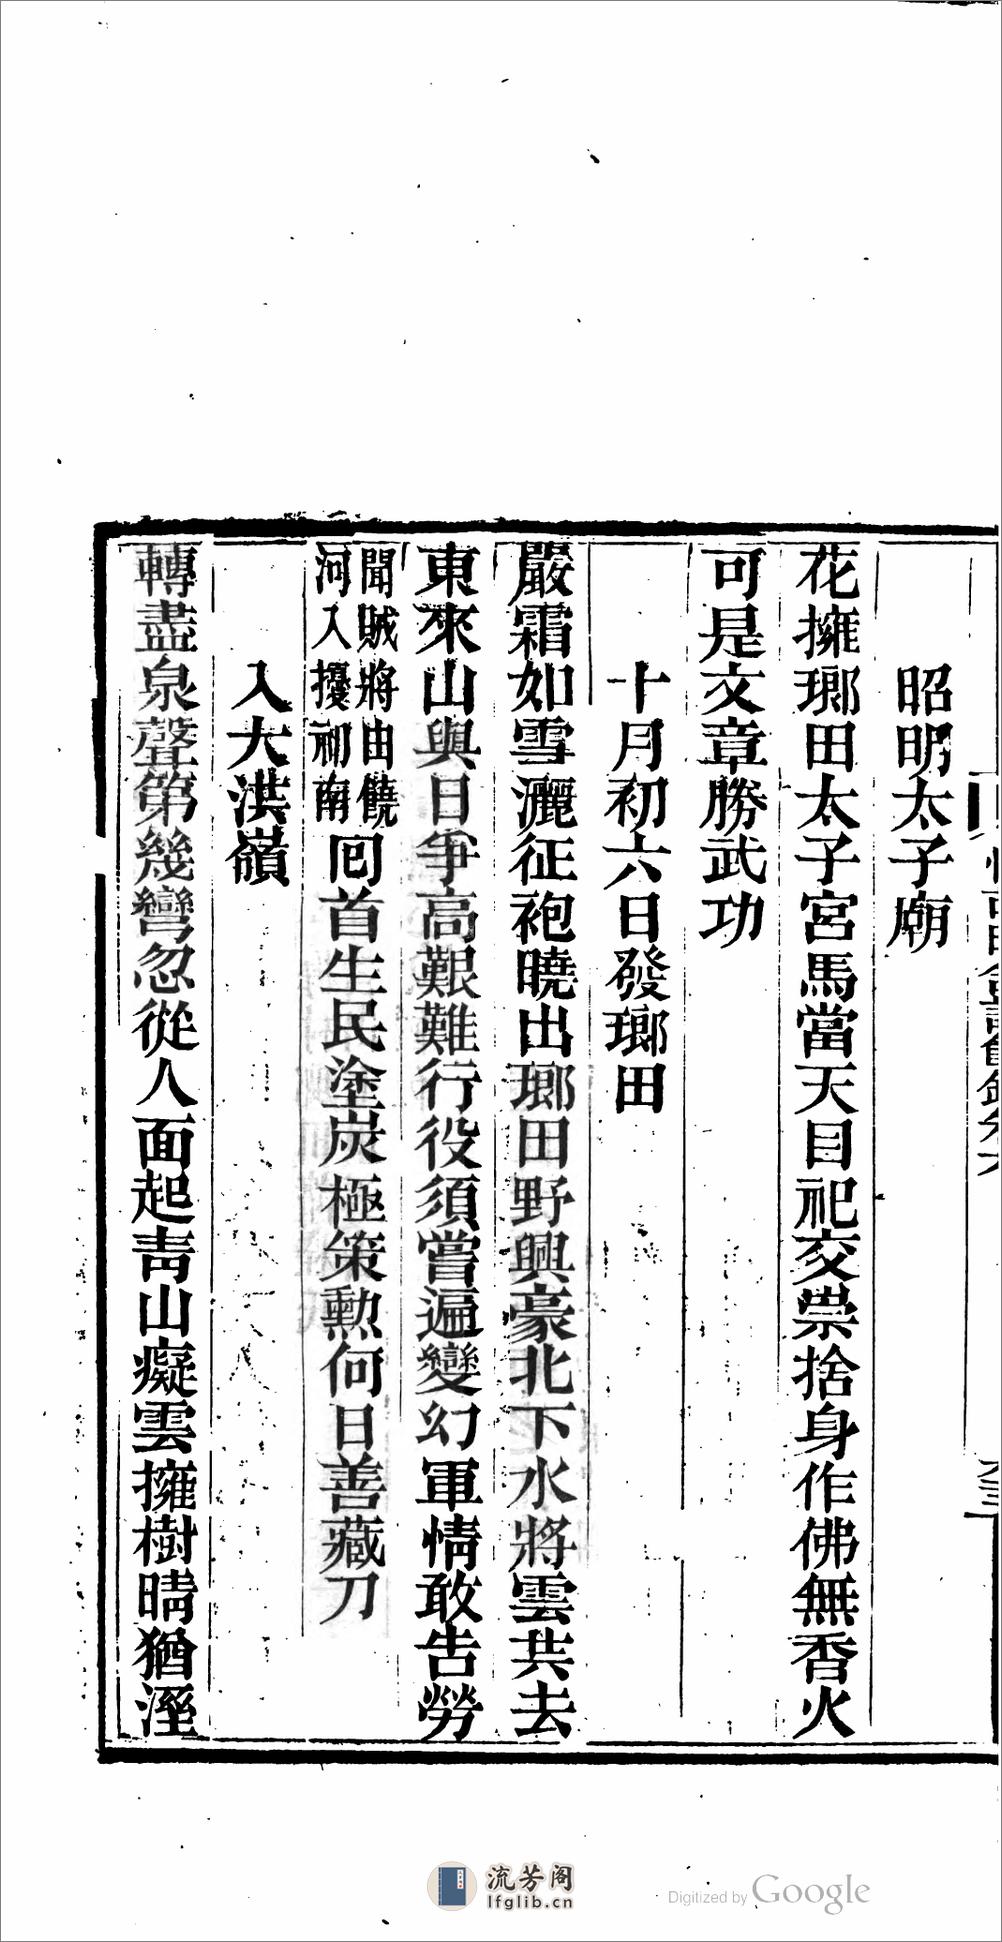 昭明太子廟
花擁瑯田太子宮馬當天目祀交崇捨身作佛無香火
可是文章勝武功
十月初六日發瑯田
嚴霜如雪灑征袍曉出瑯田野興豪北下水將雲共去
東來山與日爭高艱難行役須嘗遍變幻軍情敢告勞
聞賊將由饒
河入擾祁南
囘首生民塗炭極策勲何日善藏刀
入大洪嶺
轉盡泉聲第幾彎忽從人面起靑山癡雲擁樹晴猶溼
流芳阁
lfglib.cn
Digitized by Google